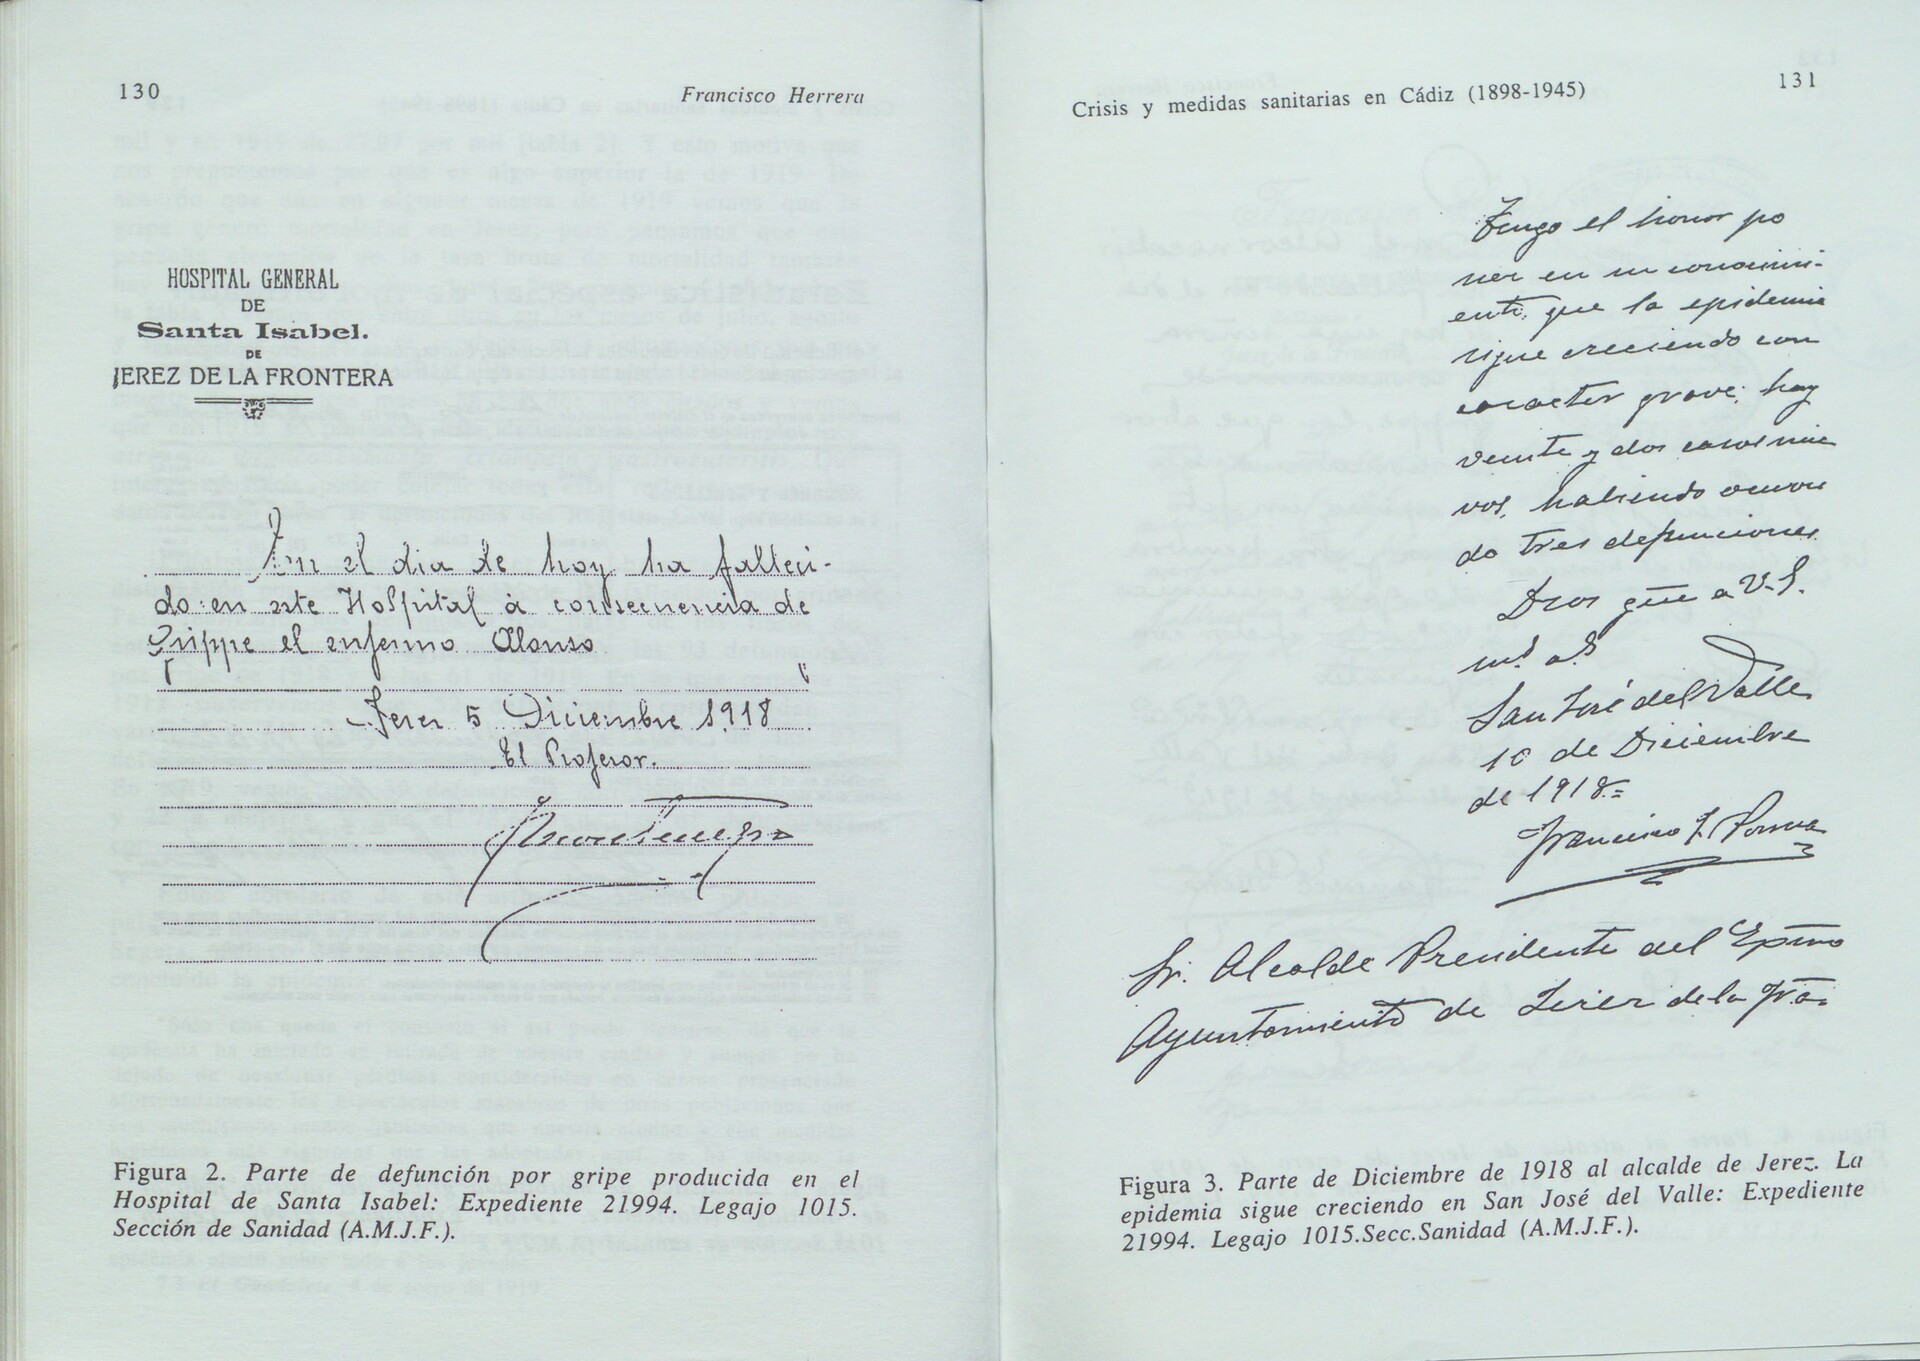 130
Francisco Herrera
HOSPITAL GENERAL
DE
Santa Isabel.
DE
JEREZ DE LA FRONTERA
En el dia de hoy ha falleci-
do en este Hospital á consecuencia de
Grippe el enfermo Alonso
Jerez 5 Diciembre 1918
El Profesor.
Figura 2. Parte de defunción por gripe producida en el
Hospital de Santa Isabel: Expediente 21994. Legajo 1015.
Sección de Sanidad (A.M.J.F.).
Crisis y medidas sanitarias en Cádiz (1898-1945)
131
Tengo el honor po
ner en su conocimi-
ento, que la epidemia
sigue creciendo con
caracter grave; hay
veinte y dos casos nue
vos, habiendo ocurri
do tres defunciones
Dios gûe a V.S.
ms. as.
San José del Valle
10 de Diciembre
de 1918=
Francisco
Sr. Alcalde Presidente del Exmo
Ayuntamiento de Jerez de la Fra.
Figura 3. Parte de Diciembre de 1918 al alcalde de Jerez. La
epidemia sigue creciendo en San José del Valle: Expediente
21994. Legajo 1015.Secc.Sanidad (A.M.J.F.).